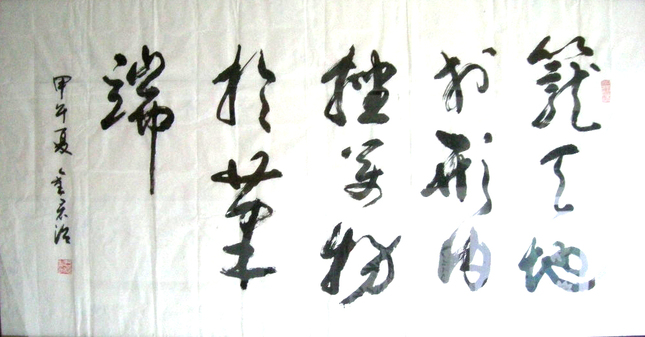 籠天地
於形内
挫萬物
於筆
端
甲午夏